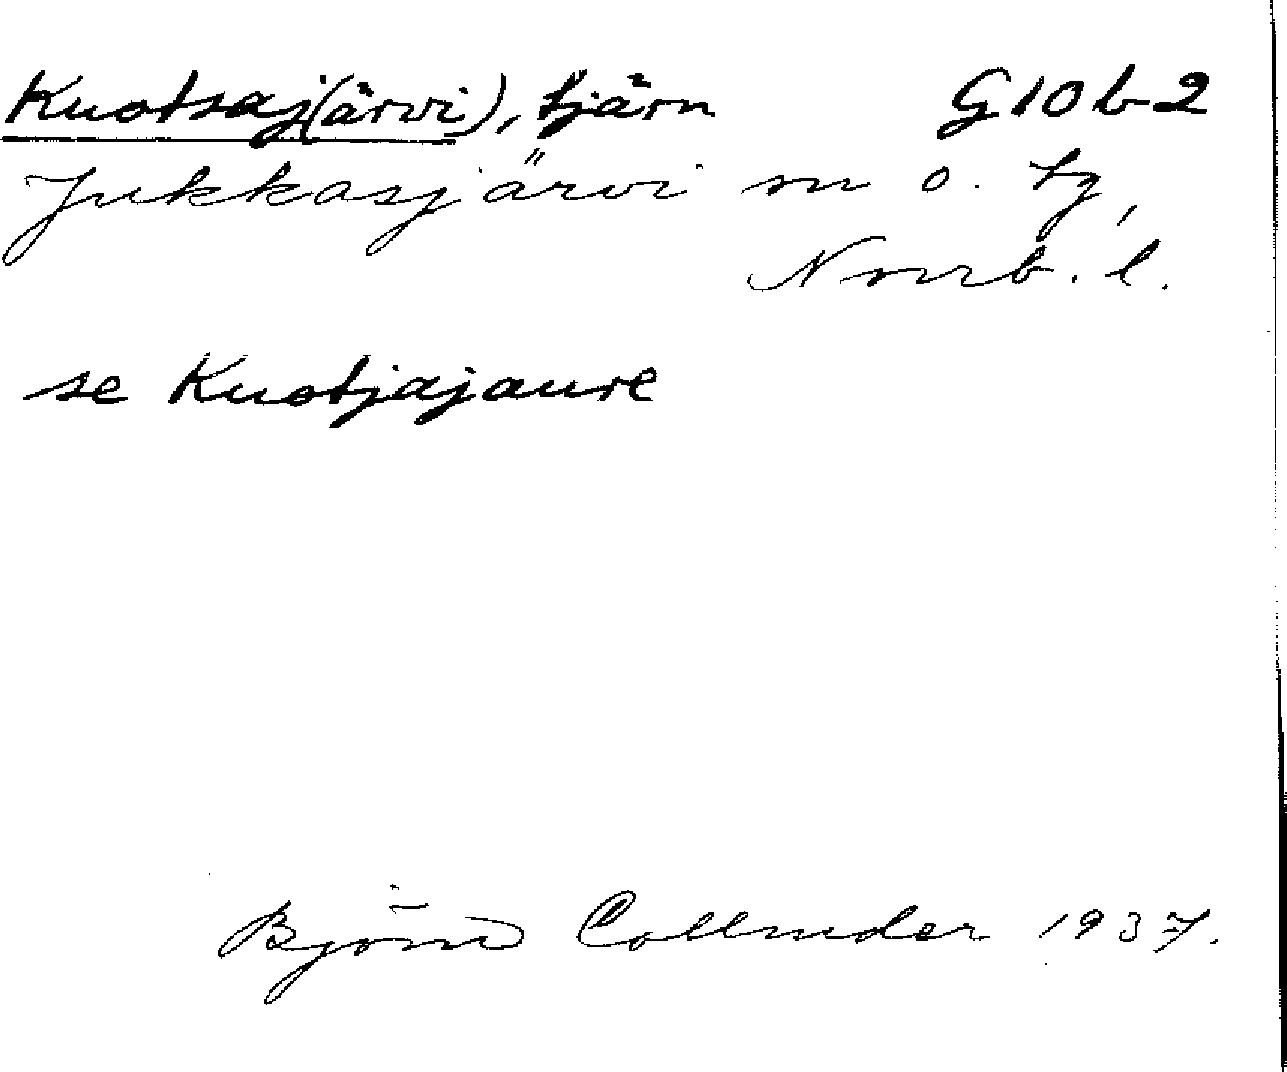 Kuotsaj(ärvi), tjärn G10b2
Jukkasjärvi sn o. tg,
Norrb. l.
se Kuotjajaure
Björn Collinder 1937.